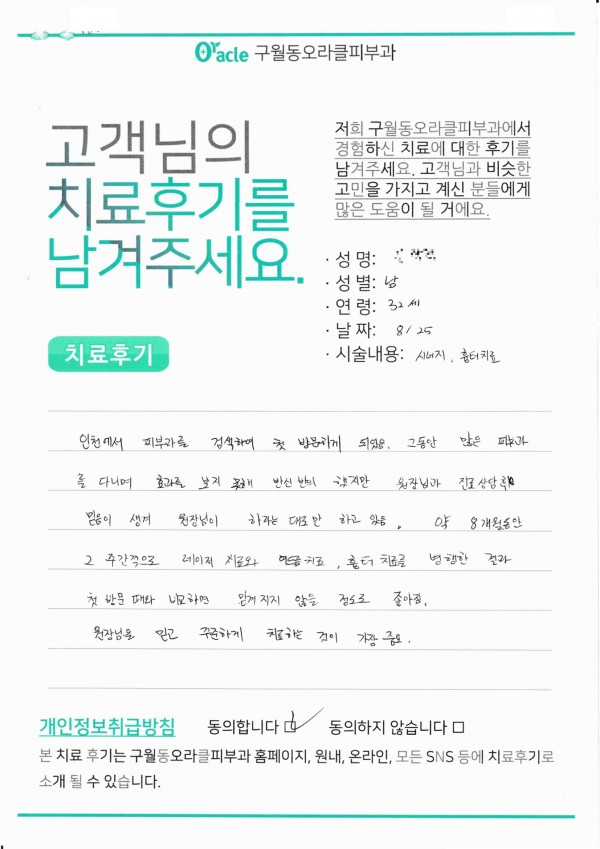 Oracle 구월동오라클피부과
고객님의
치료후기를
남겨주세요.
저희 구월동오라클피부과에서
경험하신 치료에 대한 후기를
남겨주세요. 고객님과 비슷한
고민을 가지고 계신 분들에게
많은 도움이 될 거에요.
· 성 명:
· 성 별: 남
· 연 령: 32세
· 날 짜: 8/25
· 시술내용: 시너지, 흉터치료
치료후기
인천에서 피부과를 검색하여 첫 방문하게 되었음. 그동안 많은 피부과
를 다니며 효과를 보지 못해 반신반의 했지만 원장님과 진료상담후
믿음이 생겨 원장님이 하라는 대로만 하고 있음. 약 8개월동안
2주간격으로 레이저 치료와 치료, 흉터 치료를 병행한 결과
첫 방문 때와 비교하면 믿겨지지 않을 정도로 좋아짐.
원장님을 믿고 꾸준하게 치료하는 것이 가장 중요.
개인정보취급방침 동의합니다 □ 동의하지 않습니다 □
본 치료 후기는 구월동오라클피부과 홈페이지, 원내, 온라인, 모든 SNS 등에 치료후기로
소개 될 수 있습니다.